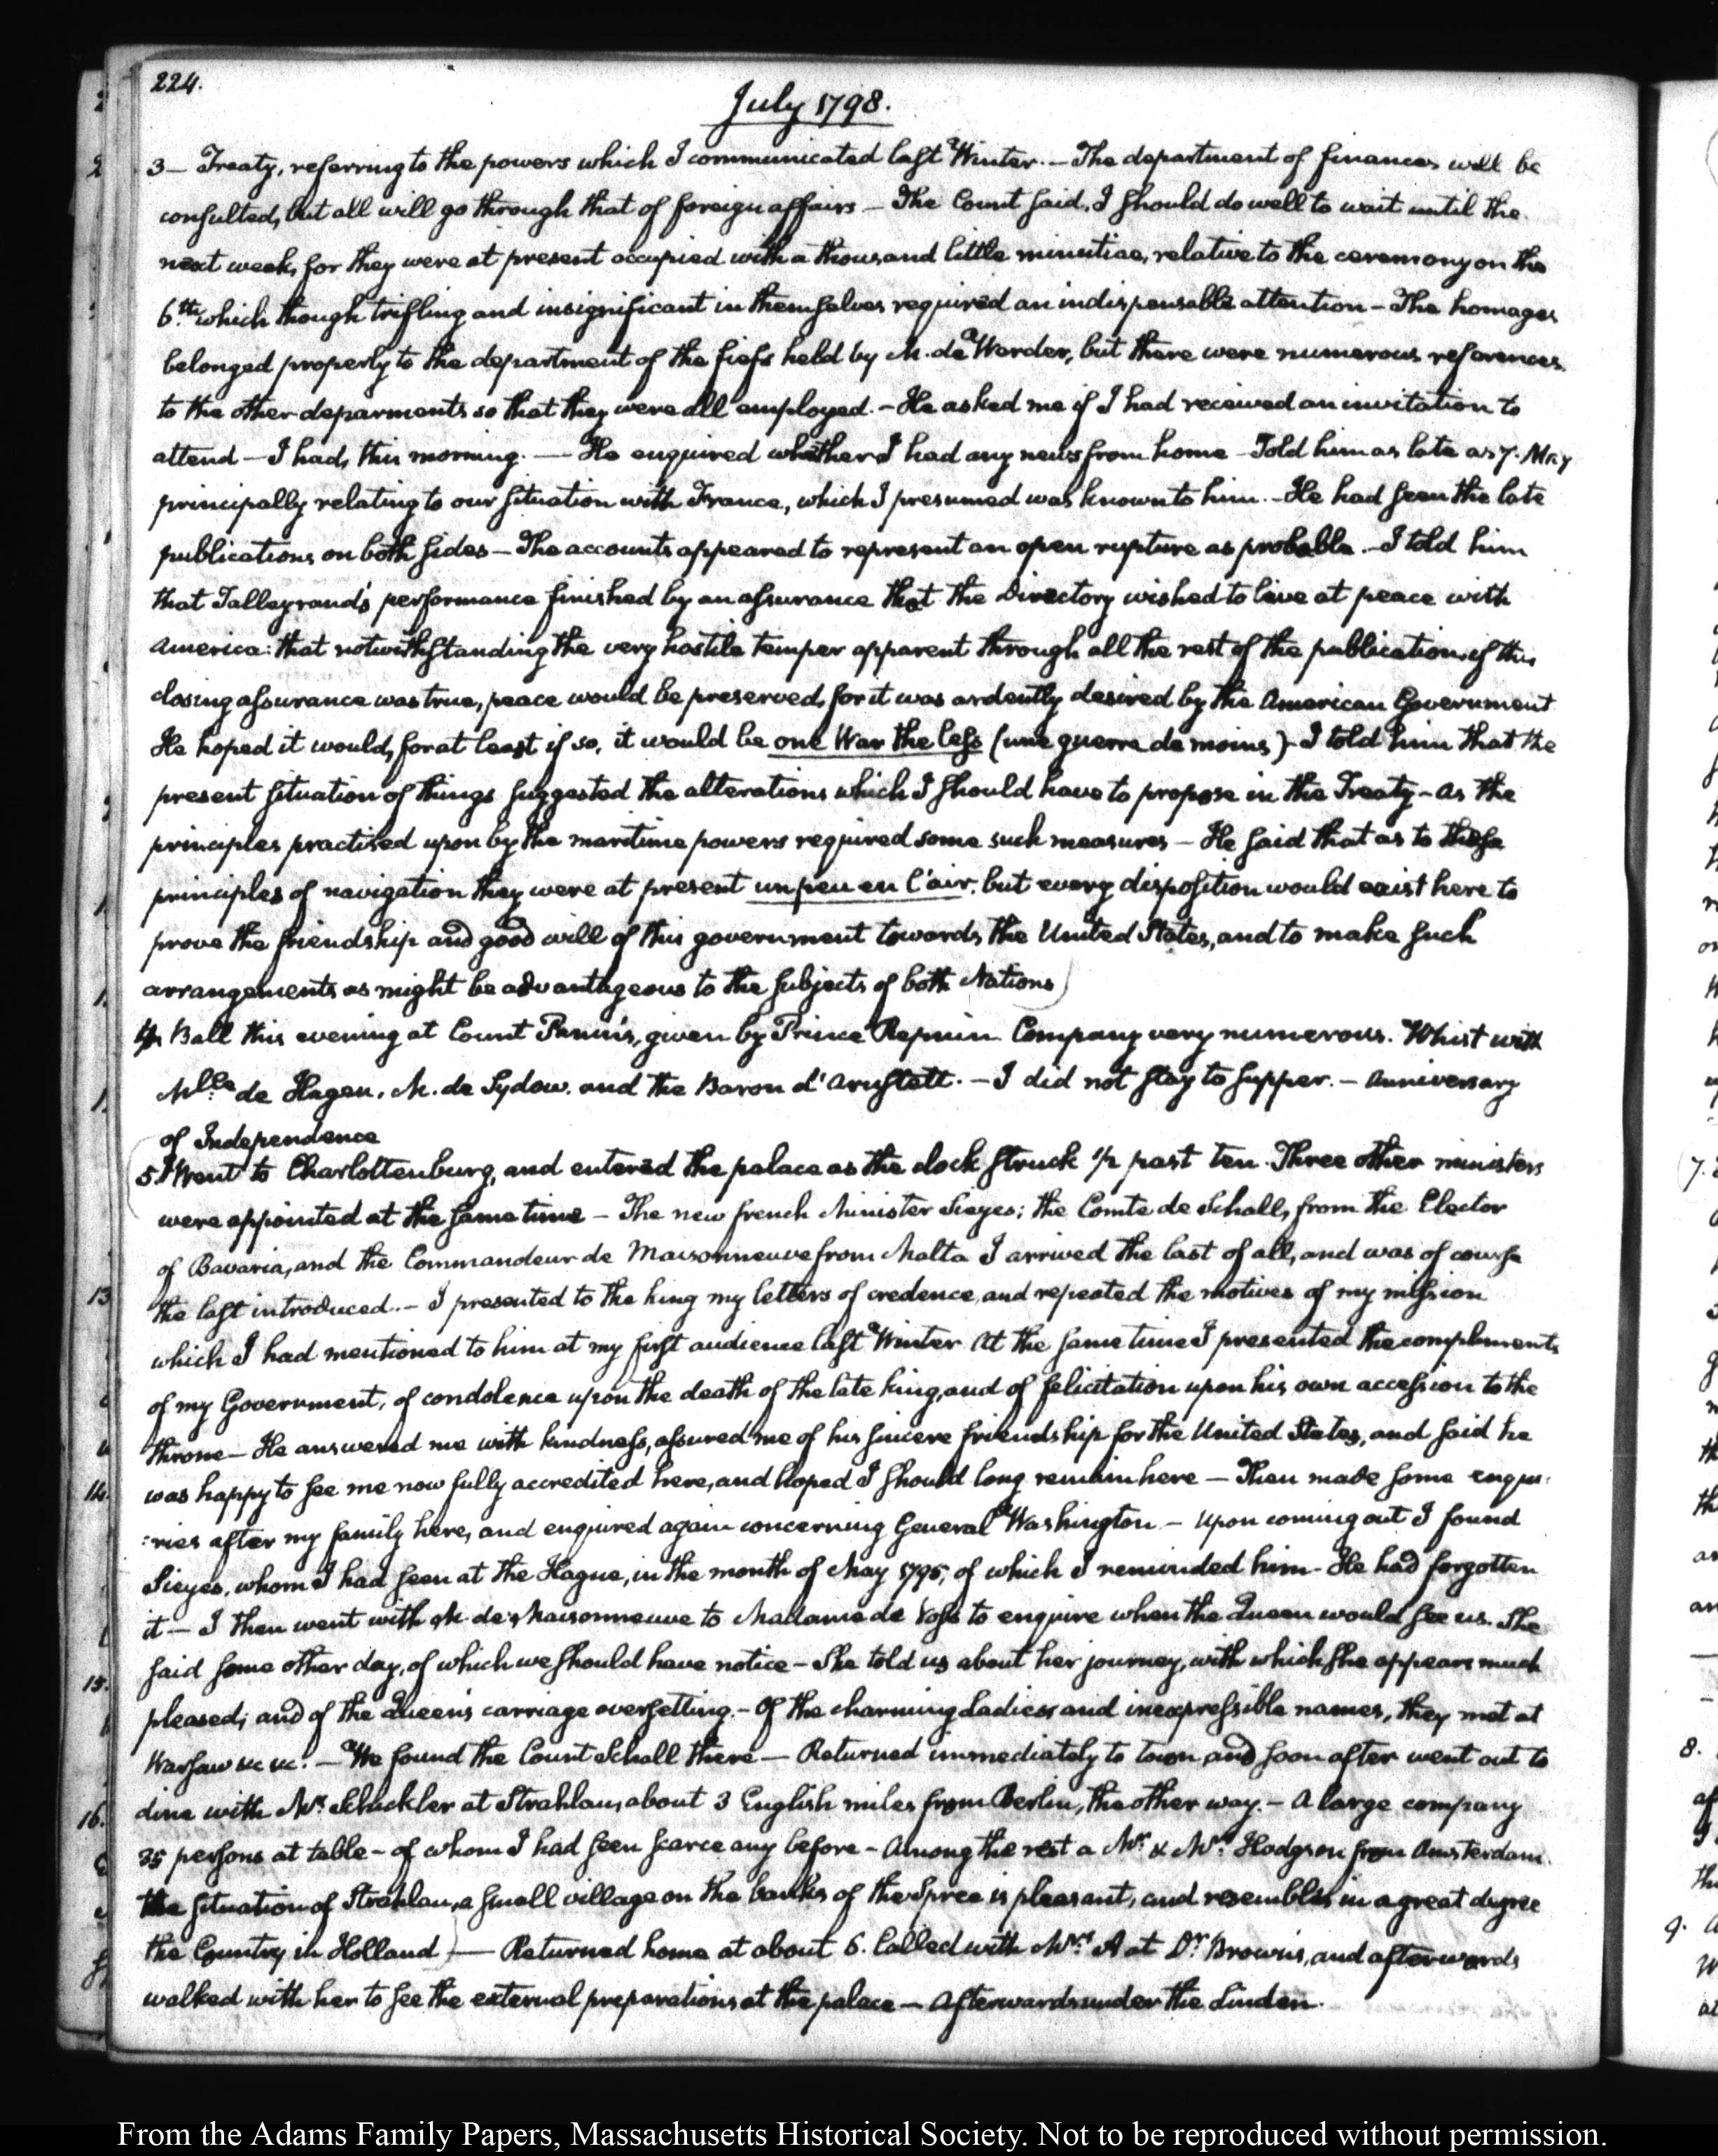 224.
July 1798.
3 — Treaty, referring to the powers which I communicated last Winter. — The department of finances will be
consulted, but all will go through that of foreign affairs — The Count said, I should do well to wait until the
next week, for they were at present occupied with a thousand little minutiae, relative to the ceremony on the
6.th which though trifling and insignificant in themselves required an indispensable attention — The homages
belonged properly to the department of the fiefs held by M. de Werder, but there were numerous references
to the other deparments so that they were all employed. — He asked me if I had received an invitation to
attend — I had, this morning. — He enquired whether I had any news from home — Told him as late as 7. May
principally relating to our situation with France, which I presumed was known to him. — He had seen the late
publications on both sides — The accounts appeared to represent an open rupture as probable. — I told him
that Talleyrand's performance finished by an assurance that the Directory wished to live at peace with
America: that notwithstanding the very hostile temper apparent through all the rest of the publication, if this
closing assurance was true, peace would be preserved, for it was ardently desired by the American Government
He hoped it would, for at least if so, it would be one War the less (une guerre de moins) — I told him that the
present situation of things suggested the alterations which I should have to propose in the Treaty — as the
principles practised upon by the maritime powers required some such measures — He said that as to these
principles of navigation they were at present un peu en l'air, but every disposition would exist here to
prove the friendship and good will of this government towards the United States, and to make such
arrangements as might be advantageous to the subjects of both Nations)
4. Ball this evening at Count Panin's, given by Prince Repnin. Company very numerous. Whist with
Mlle. de Hagen, M. de Sydow, and the Baron d'Arnstett. — I did not stay to supper. — Anniversary
of Independence
5. I Went to Charlottenburg, and entered the palace as the clock struck 1/2 past ten. Three other ministers
were appointed at the same time — The new french Minister Sieyes; the Comte de Schall, from the Elector
of Bavaria, and the Commandeur de Maisonneuve from Malta I arrived the last of all, and was of course
the last introduced. — I presented to the king my letters of credence, and repeated the motives of my mission
which I had mentioned to him at my first audience last Winter At the same time I presented the compliments
of my Government, of condolence upon the death of the late king, and of felicitation upon his own accession to the
throne — He answered me with kindness, assured me of his sincere friendship for the United States, and said he
was happy to see me now fully accredited here, and hoped I should long remain here — Then made some enqui-
:ries after my family here, and enquired again concerning General Washington — Upon coming out I found
Sieyes, whom I had seen at the Hague, in the month of May 1795, of which I reminded him — He had forgotten
it — I then went with M. de Maisonneuve to Madame de Voss to enquire when the Queen would see us. She
said some other day, of which we should have notice — She told us about her journey, with which she appears much
pleased; and of the Queen's carriage oversetting. — Of the charming Ladies and inexpressible names, they met at
Warsaw &c &c. — We found the Count Schall there — Returned immediately to town, and soon after went out to
dine with Mr. Schickler at Strahlau, about 3 English miles from Berlin, the other way. — A large company
35 persons at table — of whom I had seen scarce any before — Among the rest a Mr. & Mrs. Hodgson from Amsterdam.
the situation of Strahlau, a small village on the banks of the Spree is pleasant, and resembles in a great degree
the Country in Holland) — Returned home at about 6. Called with Mrs. A at Dr. Brown's, and afterwards
walked with her to see the external preparations at the palace — Afterwards under the Linden.
From the Adams Family Papers, Massachusetts Historical Society. Not to be reproduced without permission.